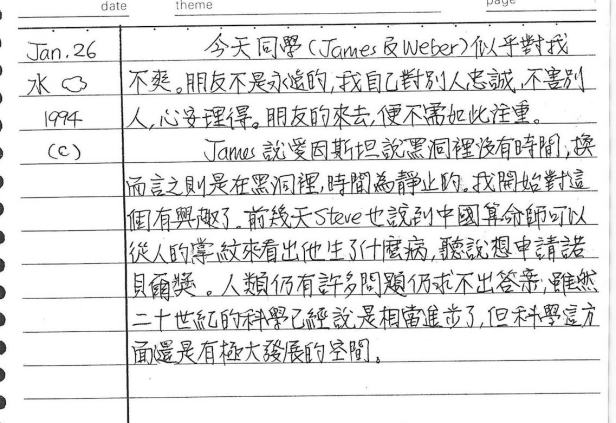 date theme page
Jan. 26 今天同學(James及Weber)似乎對我
水 不爽。朋友不是永遠的,我自己對別人忠誠,不害別
1994 人,心安理得。朋友的來去,便不需如此注重。
(C) James 說愛因斯坦說黑洞裡沒有時間,換
而言之則是在黑洞裡,時間為靜止的。我開始對這
個有興趣了。前幾天Steve也說到中國算命師可以
從人的掌紋來看出他生了什麼病,聽說想申請諾
貝爾獎。人類仍有許多問題仍求不出答案,雖然
二十世紀的科學已經說是相當進步了,但科學這方
面還是有極大發展的空間。